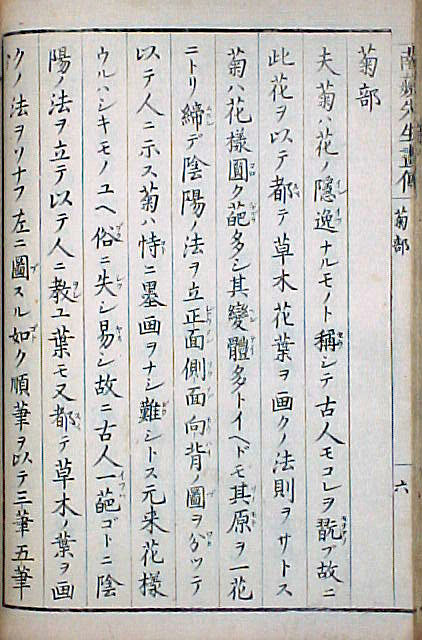 菊部
夫菊ハ花ノ隠逸ナルモノト稱シテ古人モコレヲ翫ブ故ニ
此花ヲ以テ都テ草木花葉ヲ画クノ法則ヲサトス
菊ハ花様圓ク葩多シ其變體多トイヘドモ其原ヲ一花
ニトリ締デ陰陽ノ法ヲ立正面側面向背ノ圖ヲ分ツテ
以テ人ニ示ス菊ハ恃ニ墨画ヲナシ難シトス元来花様
ウルハシキモノユヘ俗ニ失シ易シ故ニ古人一葩ゴトニ陰
陽ノ法ヲ立テ以テ人ニ教ユ葉モ又都テ草木ノ葉ヲ画
クノ法ヲソナフ左ニ圖スル如ク順筆ヲ以テ三筆五筆
先生畫傳
菊部
六